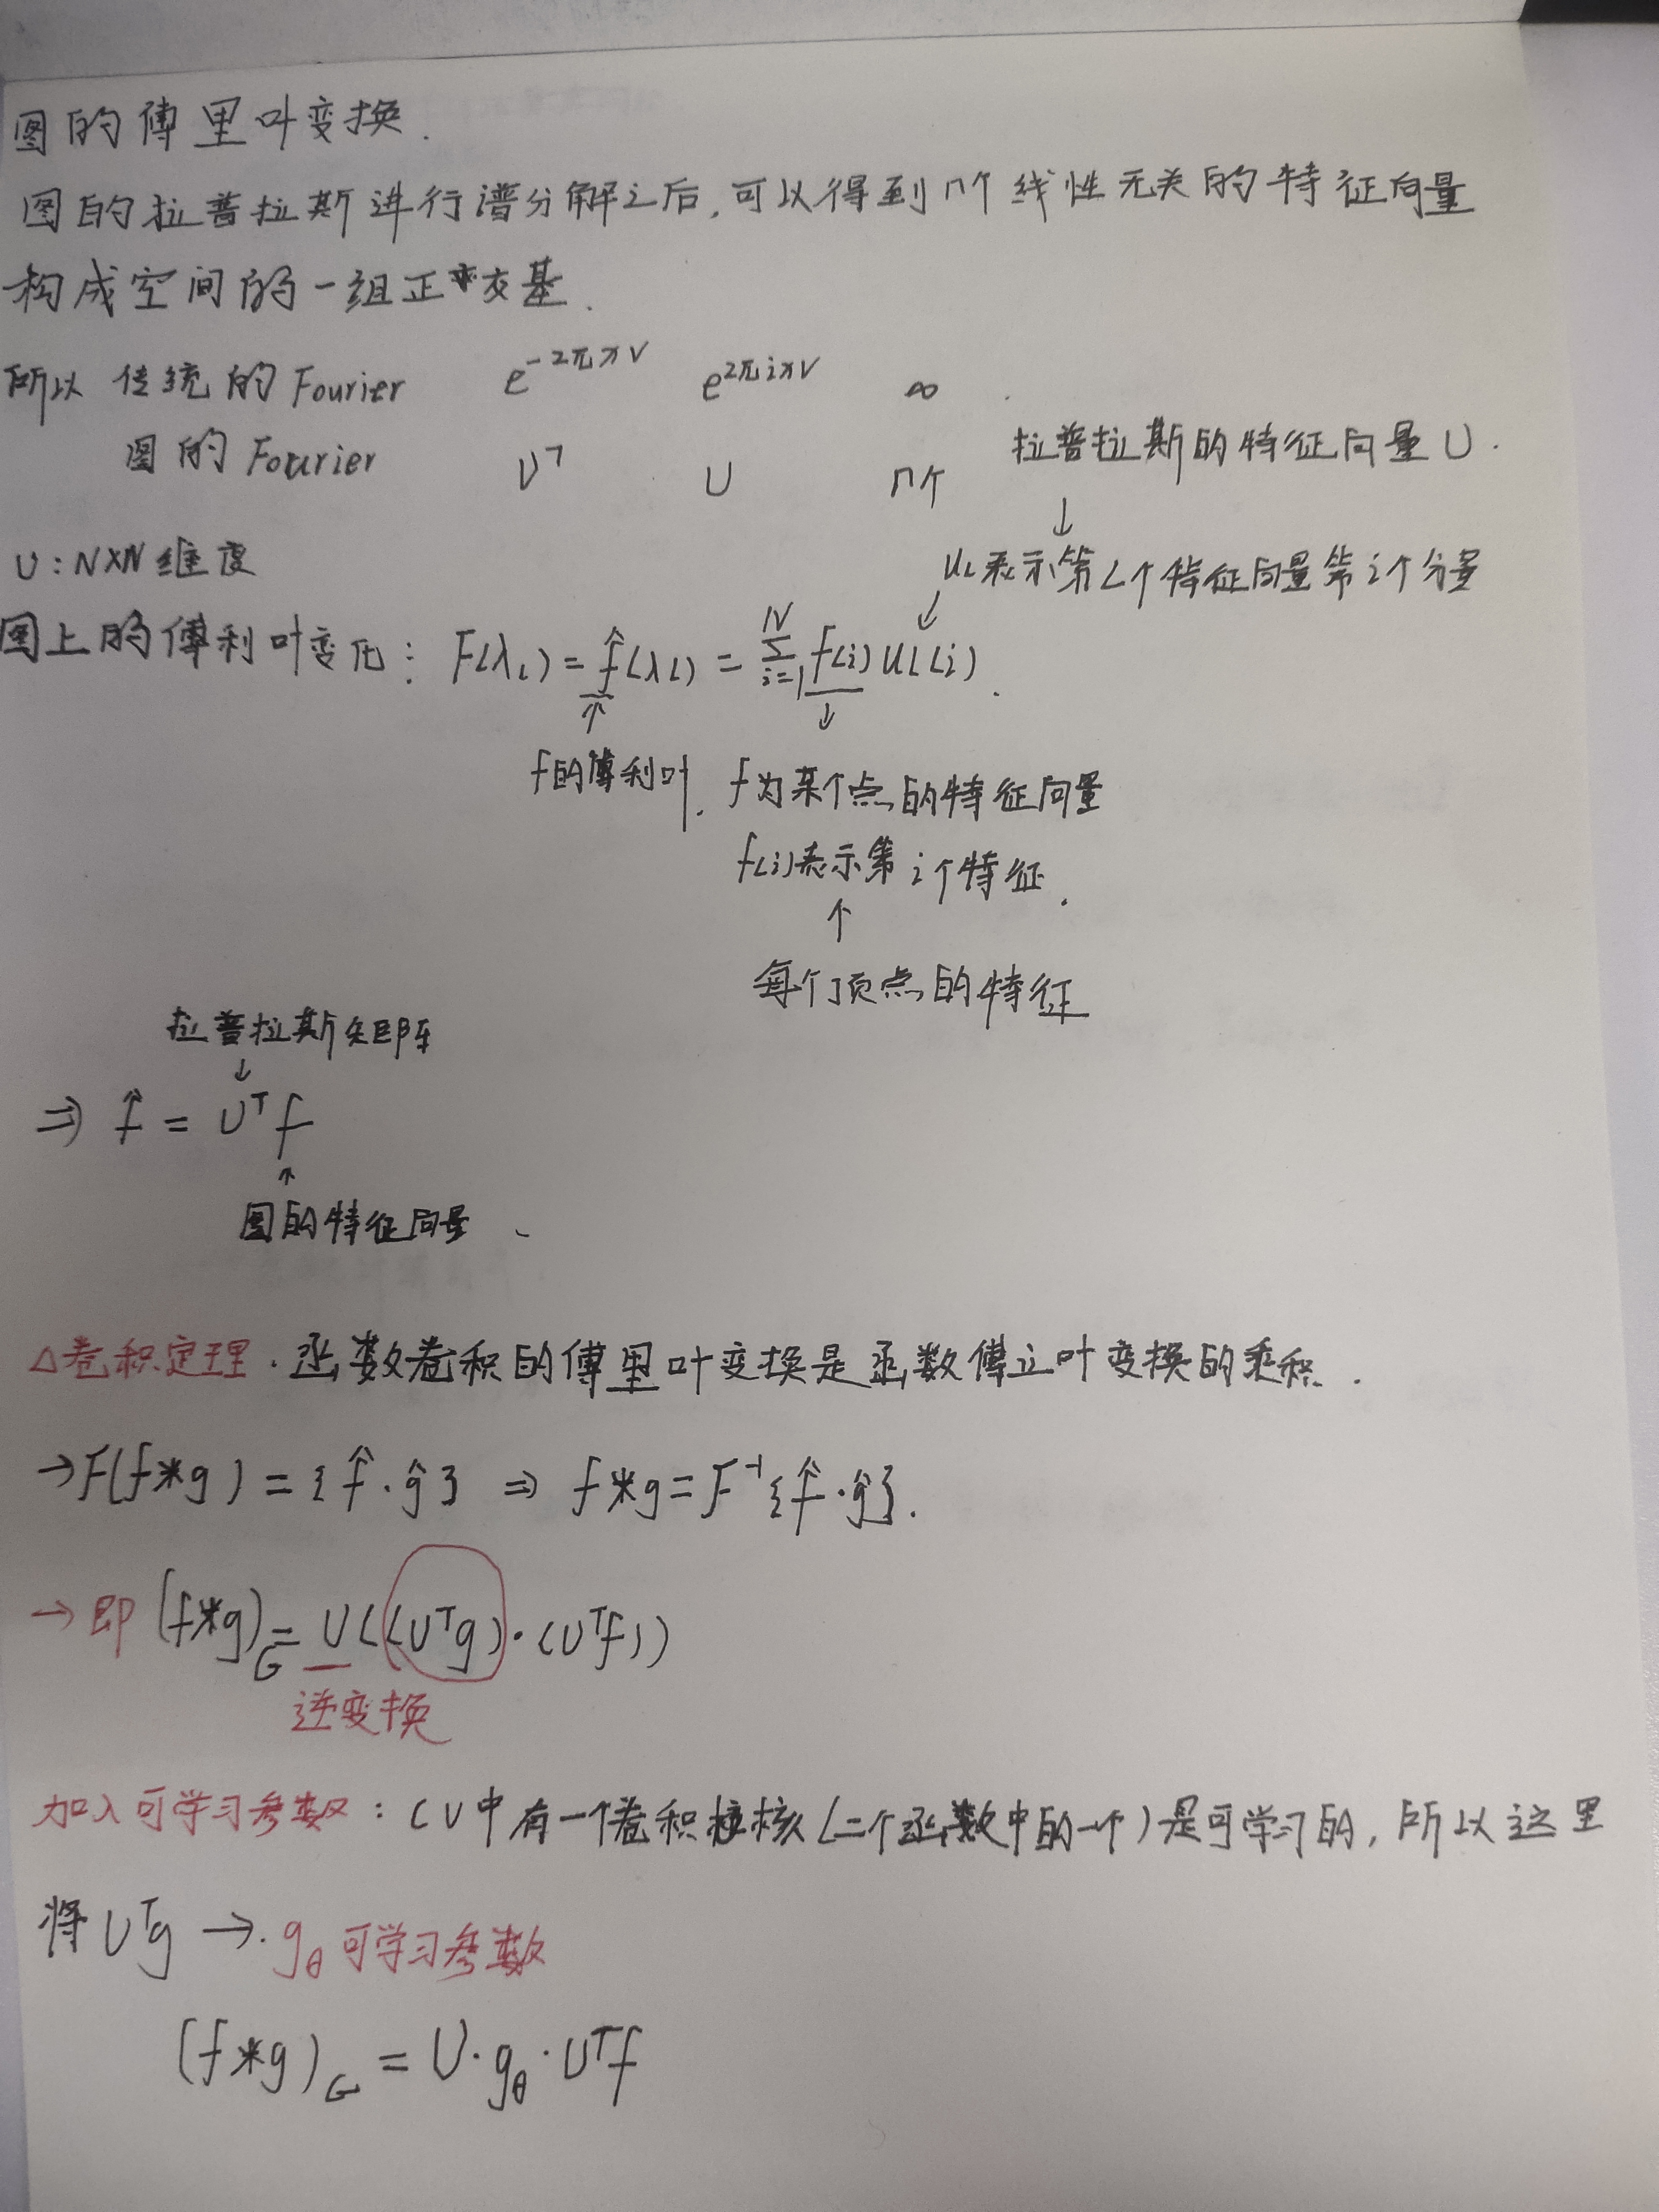 图的傅里叶变换.
图的拉普拉斯进行谱分解之后,可以得到n个线性无关的特征向量
构成空间的一组正交基.
所以 传统的Fourier e^{-2πxv} e^{2πixv} ∞
图的Fourier U^T U n个
拉普拉斯的特征向量U.
↓
U_L表示第L个特征向量第i个分量
U:N×N维度
图上的傅利叶变化: F(λ_L) = f̂(λ_L) = Σ_{i=1}^{N} f(i) U_L(i).
f的傅利叶.
f为某个点的特征向量
f(i)表示第i个特征.
↑
每个顶点的特征
拉普拉斯矩阵
↓
⇒ f̂ = U^T f
↑
图的特征向量、
△卷积定理.函数卷积的傅里叶变换是函数傅立叶变换的乘积.
→F(f*g) = {f̂·ĝ} ⇒ f*g=F^{-1}{f̂·ĝ}.
→即 (f*g)_G = U((U^Tg)·(U^Tf))
逆变换
加入可学习参数: CV中有一个卷积核(二个函数中的一个)是可学习的,所以这里
将U^Tg →. g_θ可学习参数
(f*g)_G = U·g_θ·U^Tf